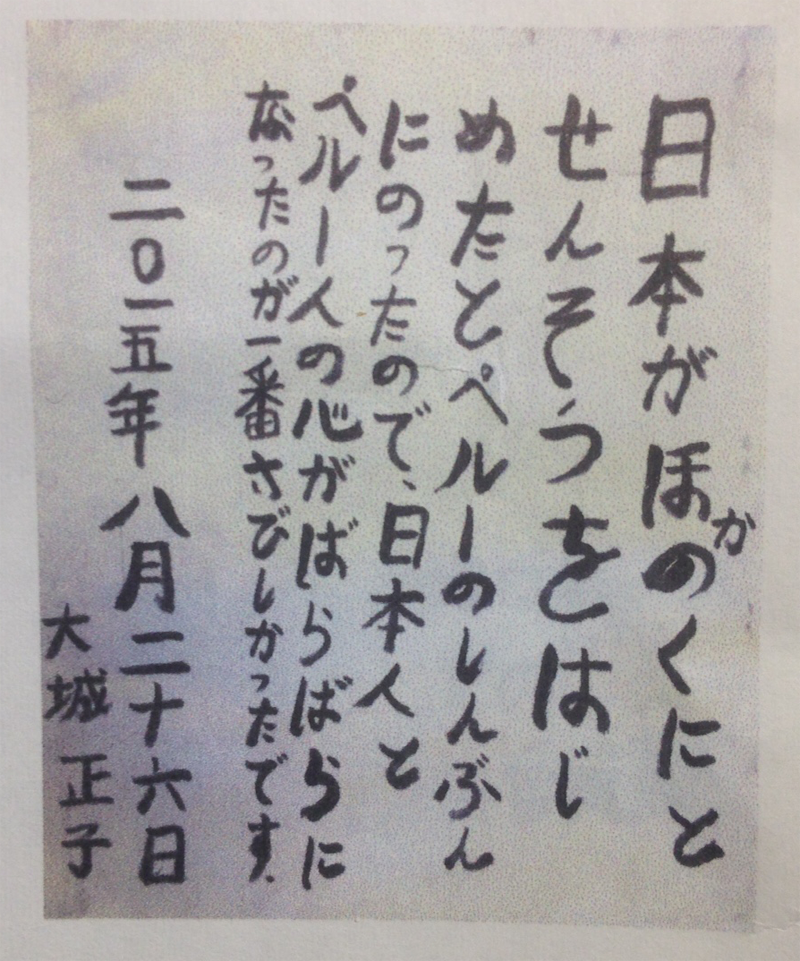 日本がほかのくにと
せんそうをはじ
めたとペルーのしんぶん
にのったので、日本人と
ペルー人の心がばらばらに
なったのが一番さびしかったです。
二〇一五年 八月二十六日
大城 正子